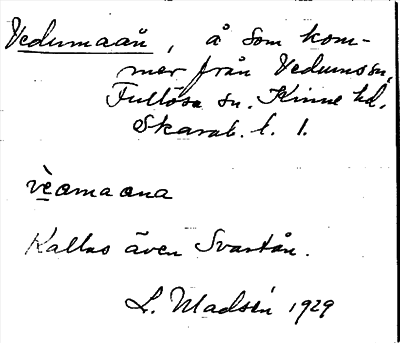 Vedumaån, å som kom-
mer från Vedums sn,
Fullösa sn. Kinne hd.
Skarab. l. 1.
vèomaona
Kallas även Svartån.
L. Madsén 1929